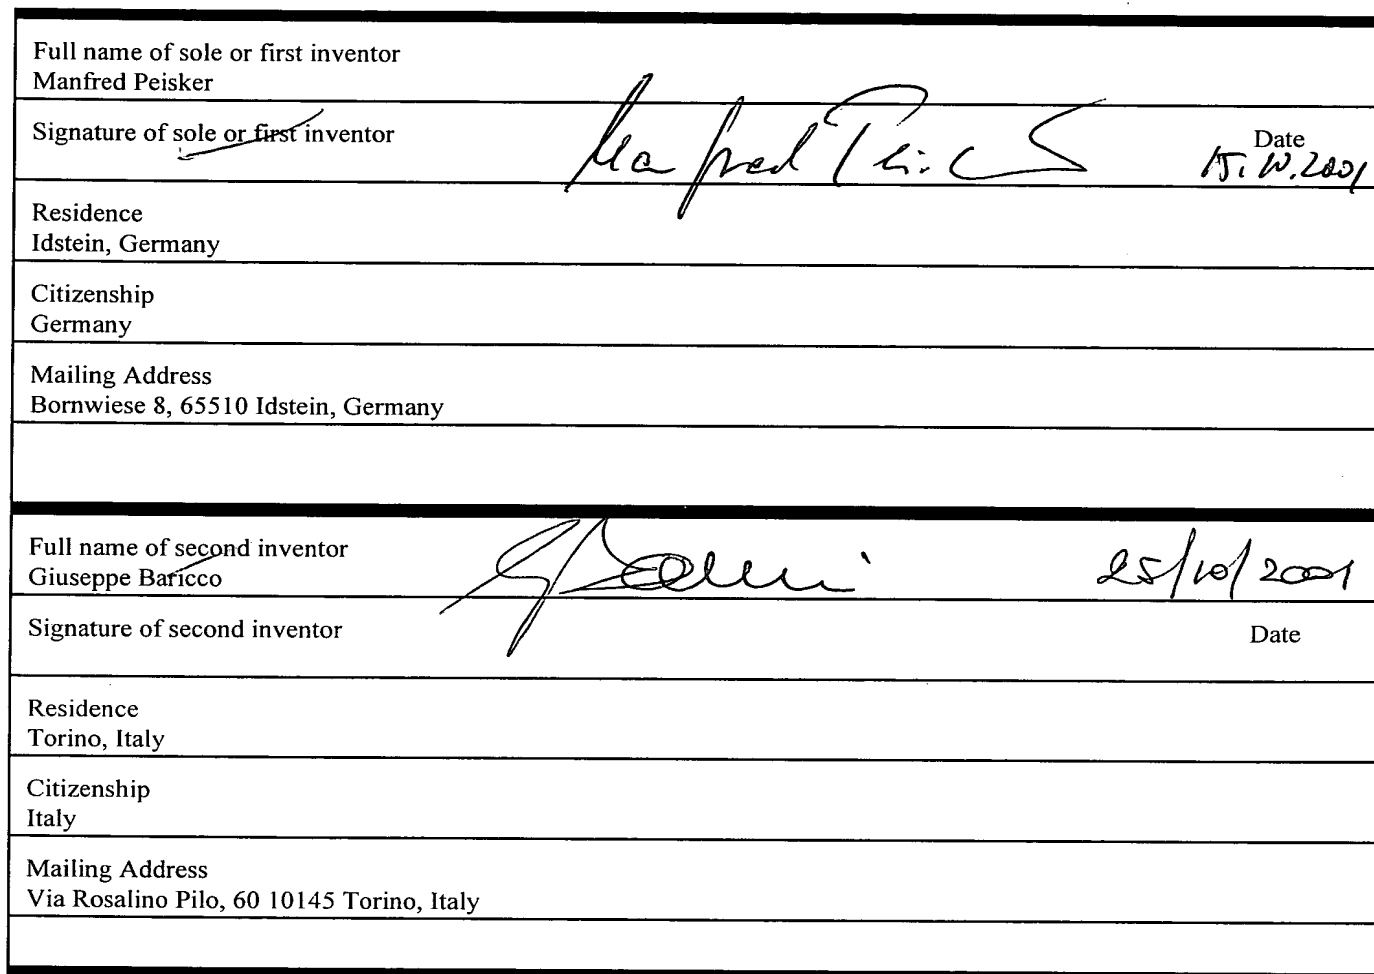 Full name of sole or first inventor
Manfred Peisker
Signature of sole or first inventor
Manfred Peisker
Date
15.10.2001
Residence
Idstein, Germany
Citizenship
Germany
Mailing Address
Bornwiese 8, 65510 Idstein, Germany
Full name of second inventor
Giuseppe Baricco
25/10/2001
Signature of second inventor
Date
Residence
Torino, Italy
Citizenship
Italy
Mailing Address
Via Rosalino Pilo, 60 10145 Torino, Italy